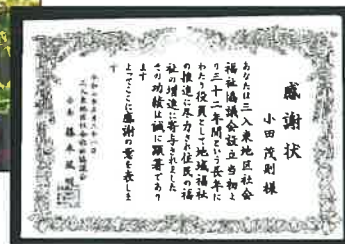 感謝状
小田茂則様
あなたは三入東地区社会
福祉協議会設立当初よ
り三十二年間という長年に
わたり役員として地域福祉
の推進に尽力され住民の福
祉の増進に寄与されました
その功績は誠に顕著であり
ます
よってここに感謝の意を表しま
す
三入東地区社会福祉協議会
会長